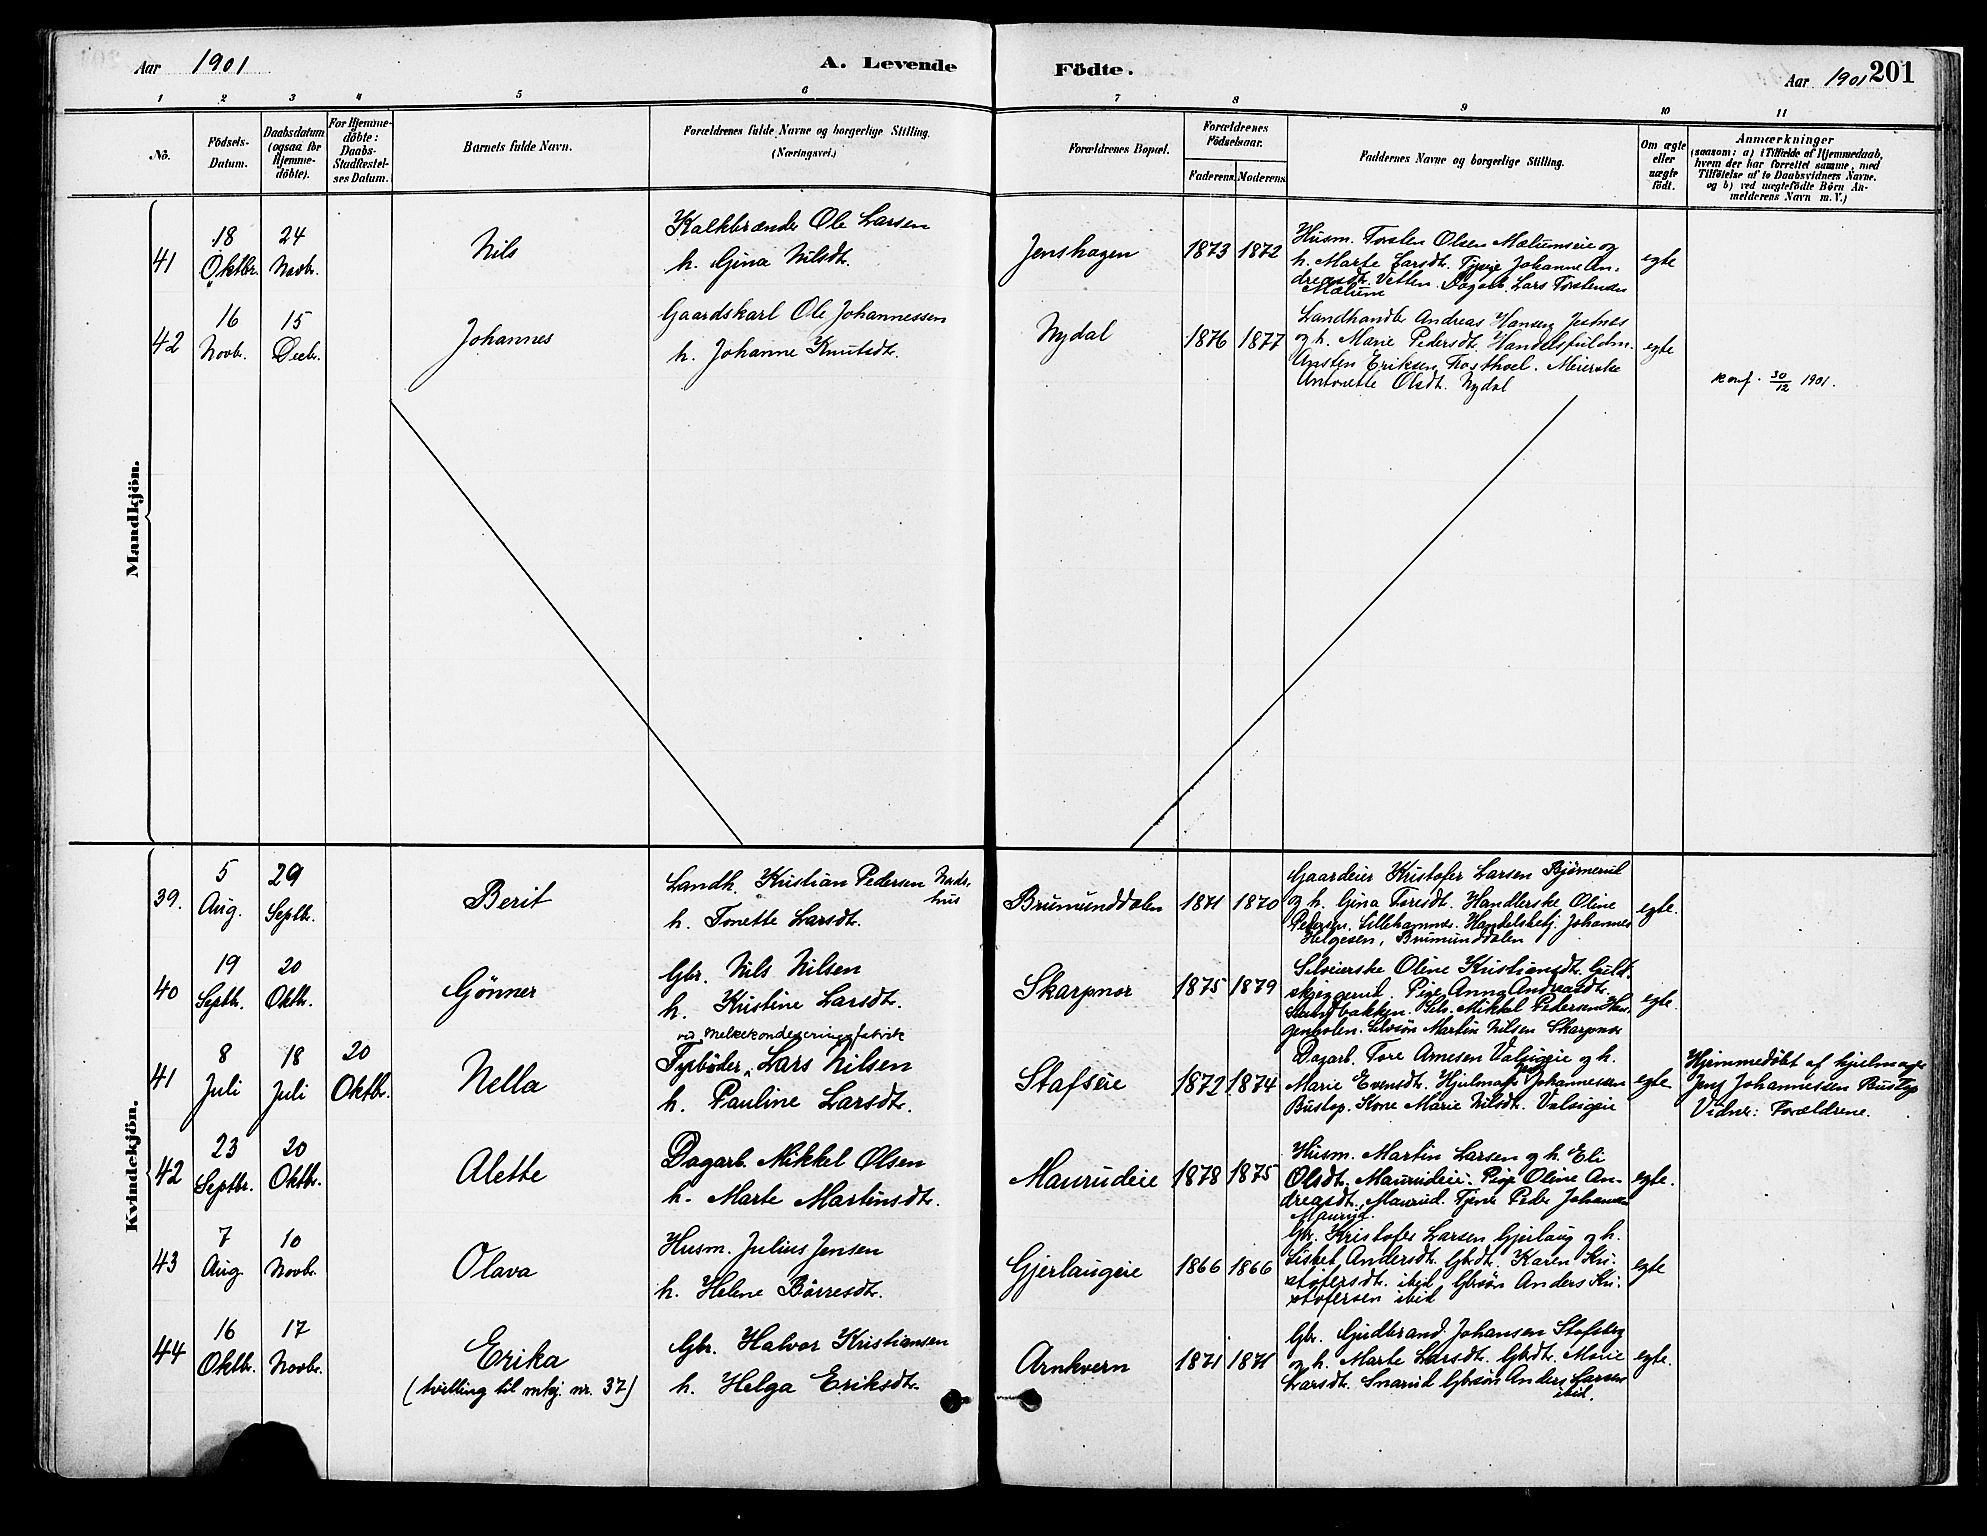 Aar 1901
A. Levende
Födte.
Aar 1901
201
1 2 3 4 5 6 7 8 9 10 11
No.
Födsels-
Datum.
Daabsdatum
(ogsaa for
Hjemme-
döbte).
For Hjemme-
döbte:
Daabs-
Stadfæstel-
ses Datum.
Barnets fulde Navn.
Forældrenes fulde Navne og borgerlige Stilling.
(Næringsvei.)
Forældrenes Bopæl.
Forældrenes
Födselsaar.
Faderens. Moderens.
Faddernes Navne og borgerlige Stilling.
Om ægte
eller
uægte
födt.
Anmærkninger
(saasom: a) i Tilfælde af Hjemmedaab,
hvem der har forrettet samme, med
Tilföielse af to Daabsvidners Navne.
og b) ved uægtefödte Börn An-
melderens Navn m. V.)
Mandkjön.
41
18
Oktbr.
24
Novbr.
Nils
Kalkbrænder Ole Larsen
h. Gina Nilsdt.
Jenshagen
1873 1872
Husm. Torsten Olsen Mælumseie og
h. Marte Larsdt. Johanne An-
dreasdt. Vetten. Dagarb. Lars Torstensen
Mælum
egte
42
16
Novbr.
15
Decbr.
Johannes
Gaardskarl Ole Johannessen
h. Johanne Knutsdt.
Nydal
1876 1877
Landhandler Andreas Hansen Jestnes
og h. Marie Pedersdt.
Eriksen Meierske
Antonette Olsdt. Nydal
egte
konf. 30/12 1901.
Kvindekjön.
39.
5
Aug.
29
Septbr.
Berit
Landh. Kristian Pedersen
hus
h. Tonette Larsdt.
Brumunddalen
1871 1870
Gaardeier Kristofer Larsen Bjørnerud
og h. Gina Toresdt. Handlerske Oline
Pedersen. Lillehammer. Handelsbetj. Johannes
Helgesen, Brumunddalen
egte.
40
19
Septbr.
20
Oktbr.
Gönner
Gbr. Nils Nilsen
h. Kristine Larsdt.
Skarpnor
1875 1879
Selveierske Oline Kristiansdt. Guld-
skjeggerud. Pige Anna Andreasdt.
bakken. Selv. Mikkel Pedersen
Selvsön Martin Nilsen Skarpnor
egte.
41
8
Juli
18
Juli
20
Oktbr.
Nella
ved Melkekondenseringsfabrik
Fyrböder, Lars Nilsen
h. Pauline Larsdt.
Stafseie
1872 1874
Dagarb. Tore Arnesen Valsigeie og h.
Marie Evensdt. Hjulmager Jens Johannessen
Bustop. Kone Marie Nilsdt. Valsigeie
egte
Hjemmedøbt af hjulmager
Jens Johannessen Bustop
Vidner: Forældrene.
42
23
Septbr.
20
Oktbr.
Alette
Dagarb. Mikkel Olsen
h. Marte Martinsdt.
Maurudeie
1878 1875
Husm. Martin Larsen og h. Eli
Olsdt. Maurudeie. Pige Oline An-
dreasdt., Maurud. Tjener Peder Johansen
Maurud.
egte.
43
7
Aug.
10
Novbr.
Olava
Husm. Julius Jensen
h. Helene Börresdt.
Gjerlaugeie
1866 1866
Gbr. Kristofer Larsen Gjerlaug og h.
Lisbet Andersdt. Gbdt. Karen Kri-
stofersdt. ibid, Gbrsön Anders Kri-
stofersen ibid
egte
44
16
Oktbr.
17
Novbr.
Erika
(tvilling til mkj. nr. 37)
Gbr. Halvor Kristiansen
h. Helga Eriksdt.
Arnkvern
1871 1871
Gbr. Gudbrand Johansen Stafsberg
og h. Marte Larsdt. Gbdt. Marie
Larsdt. Snarud Gbrsön Anders Larsen
ibid.
egte.